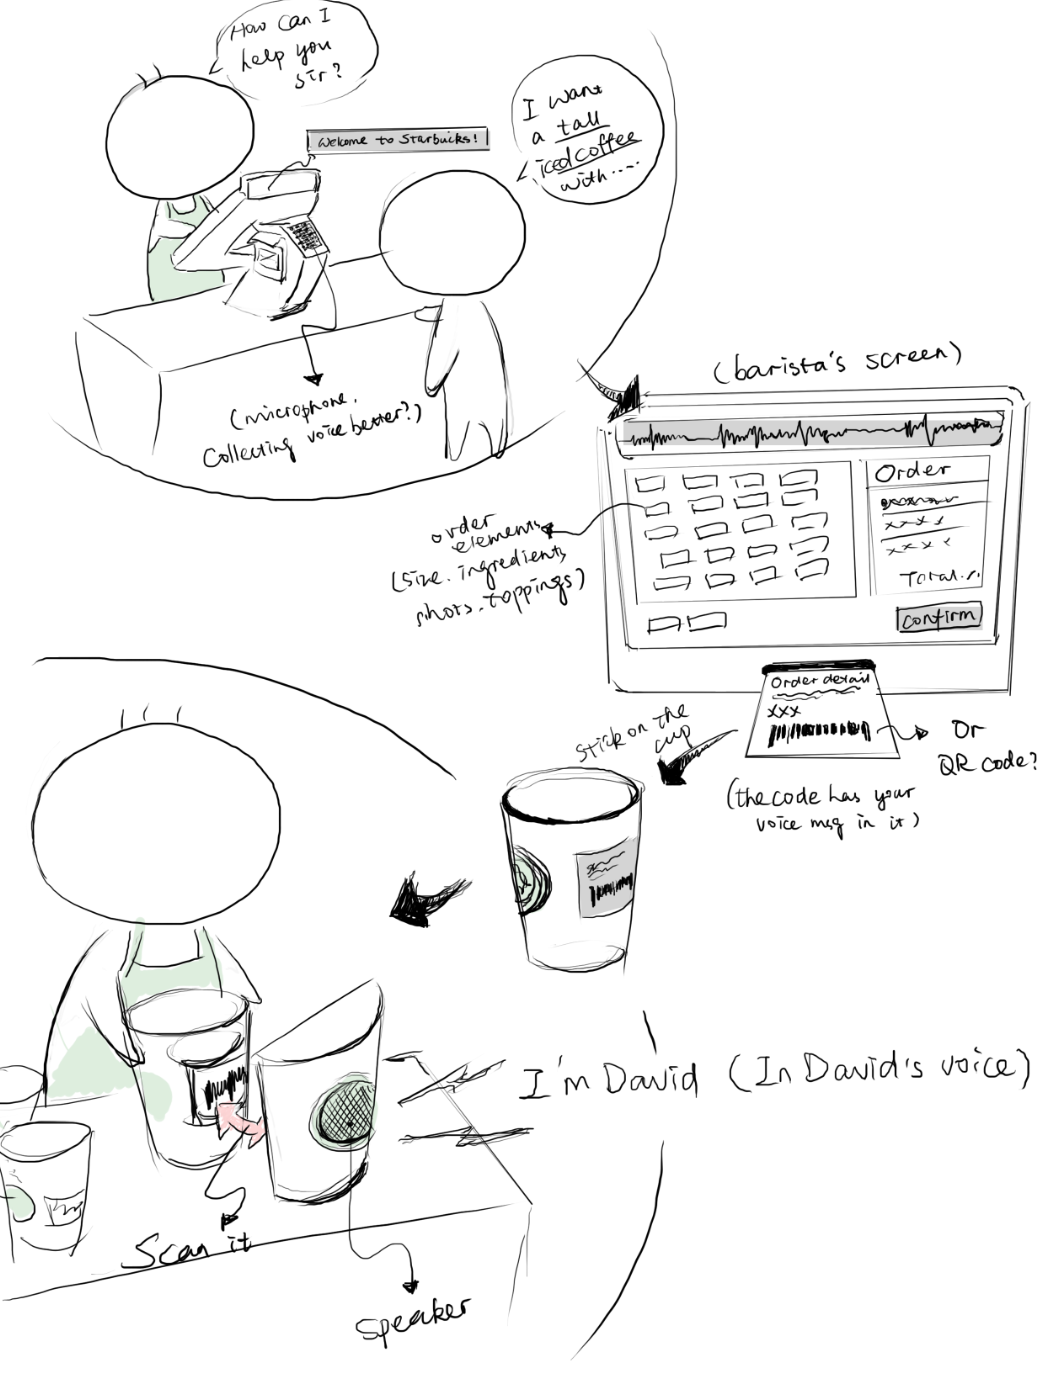 How can I
help you
sir?
Welcome to Starbucks!
I want
a tall
iced coffee
with.....
(microphone.
Collecting voice better?)
(barista's screen)
Order
xxxx
xxxx
Total..
Confirm
order
elements
(size. ingredients
shots. toppings)
Order detail
xxx
Or
QR code?
(the code has your
voice msg in it)
Stick on the
cup
I'm David (In David's voice)
Scan it
Speaker